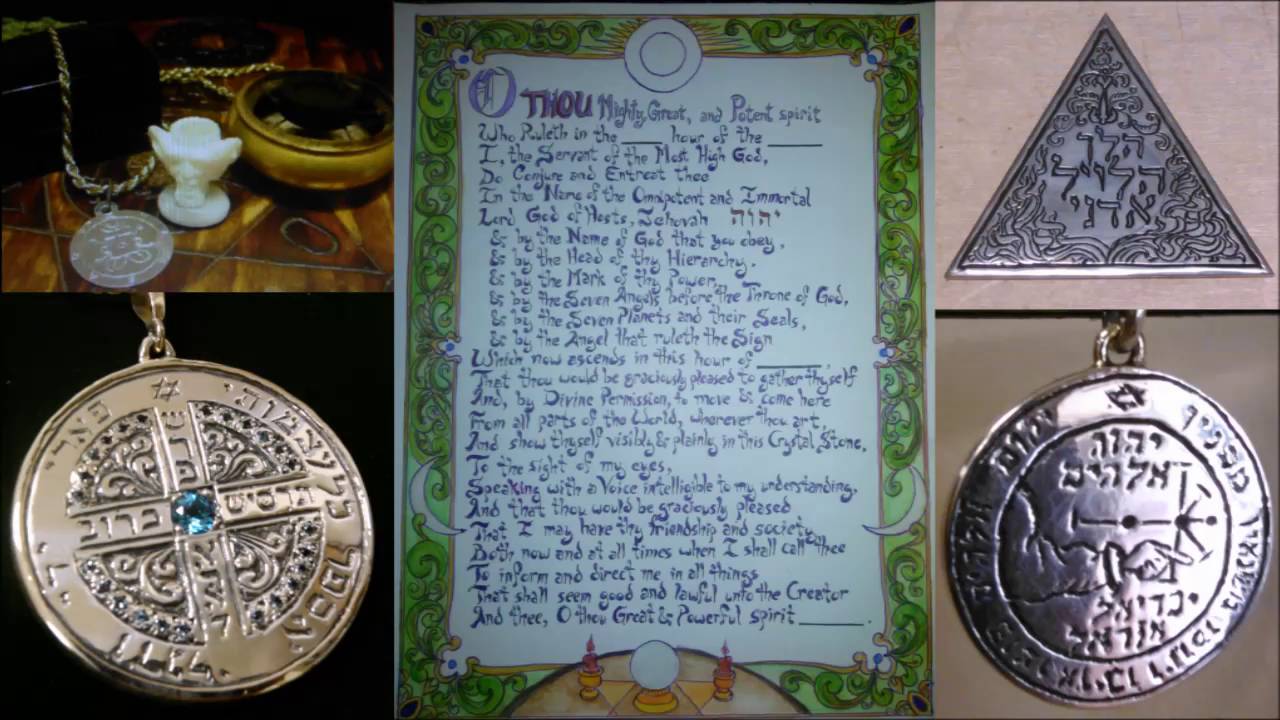 O THOU Mighty, Great, and Potent spirit
Who Ruleth in the ____ hour of the ______
I, the Servant of the Most High God,
Do Conjure and Entreat thee
In the Name of the Omnipotent and Immortal
Lord God of Hosts, Jehovah יהוה
& by the Name of God that you obey,
& by the Head of thy Hierarchy,
& by the Mark of thy Power,
& by the Seven Angels before the Throne of God,
& by the Seven Planets and their Seals,
& by the Angel that ruleth the Sign
Which now ascends in this hour of ______,
That thou would be graciously pleased to gather thyself
And, by Divine Permission, to move & come here
From all parts of the World, wherever thou art,
And show thyself visibly & plainly in this Crystal Stone,
To the sight of my eyes,
Speaking with a Voice intelligible to my understanding,
And that thou would be graciously pleased
That I may have thy friendship and society,
Both now and at all times when I shall call thee
To inform and direct me in all things
That shall seem good and lawful unto the Creator
And thee, O thou Great & Powerful spirit ______.
אדני
כרוב
תרשיש
יהוה
אלהים